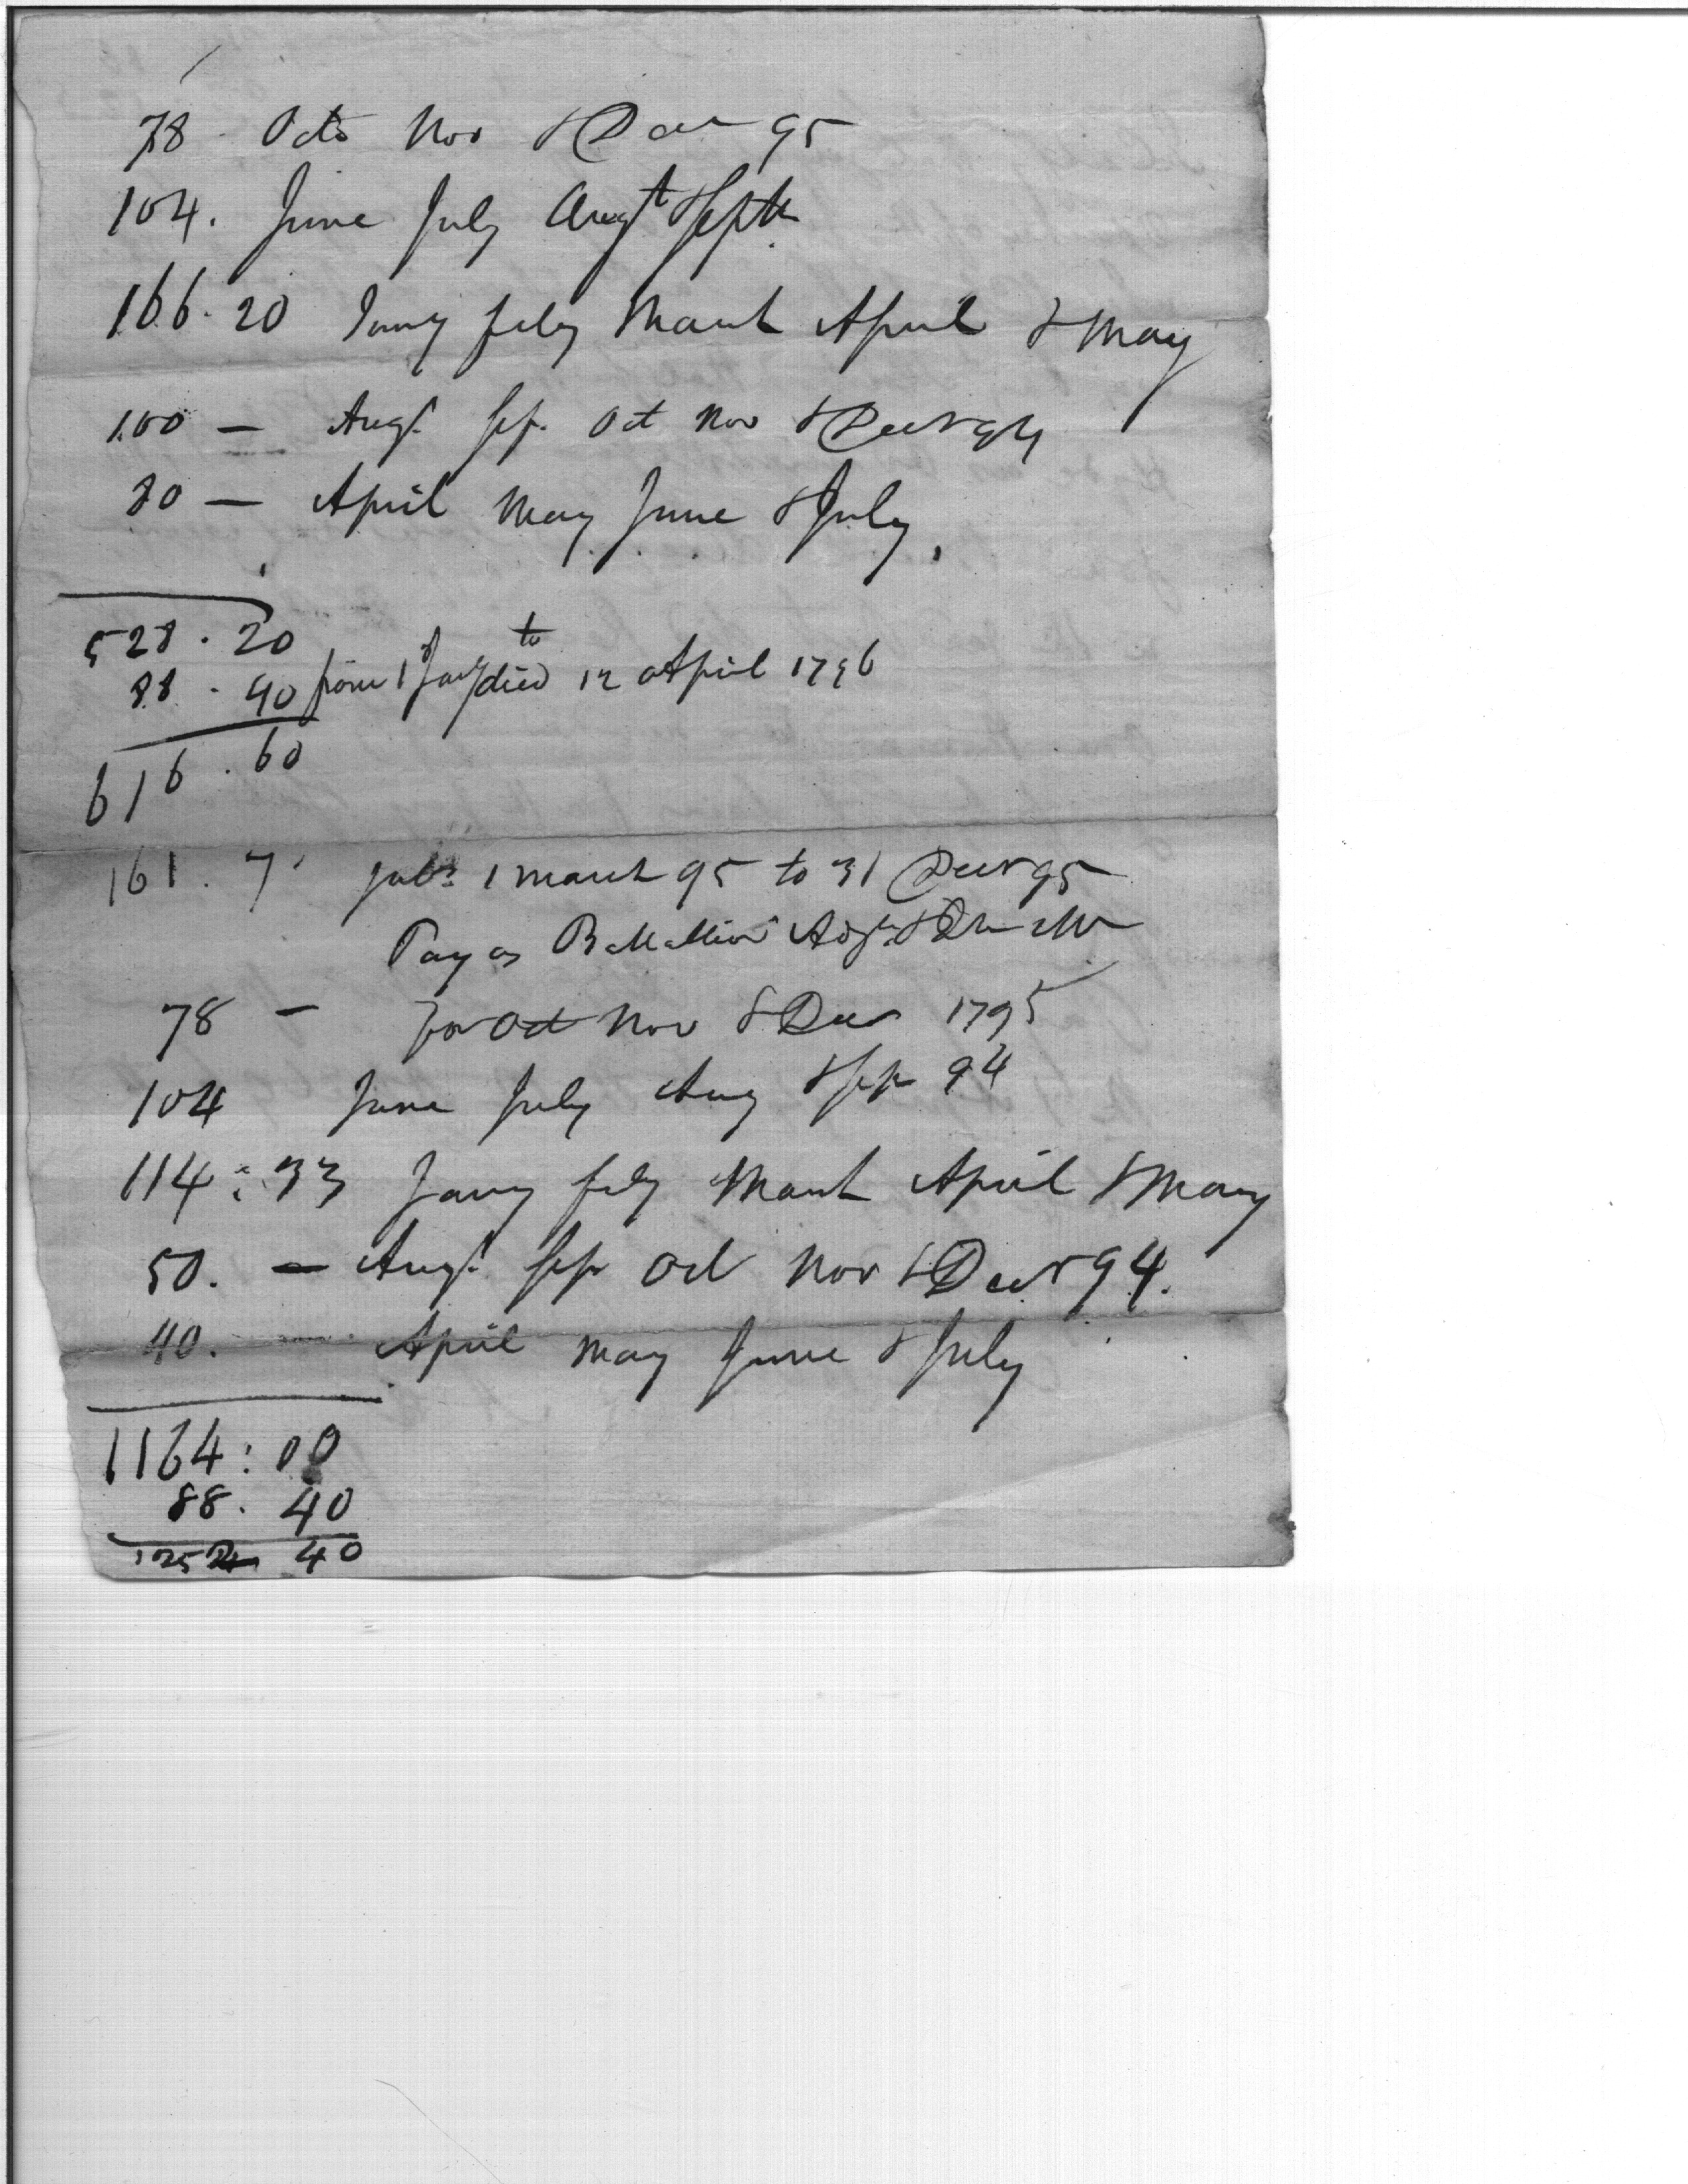 78 - Octo Nov & Decr 95
104. June July Augt & Septr
166. 20 Jany feby March April & May
100 — Augt. Sep. Oct Nov & Decr 94
80 — April May June & July.
528. 20
88. 40 from 1st Jany to died 12 April 1796
616. 60
161. 7. 1 March 95 to 31 Decr 95
Pay as Battallion Adjt &
78 — for Oct Nov & Decr 1795
104 June July Aug & Sepr 94
114: 33 Jany feby March April & May
50. — Augt. Sepr Oct Nov & Decr 94.
40. April May June & July
1164: 00
88. 40
1252 40